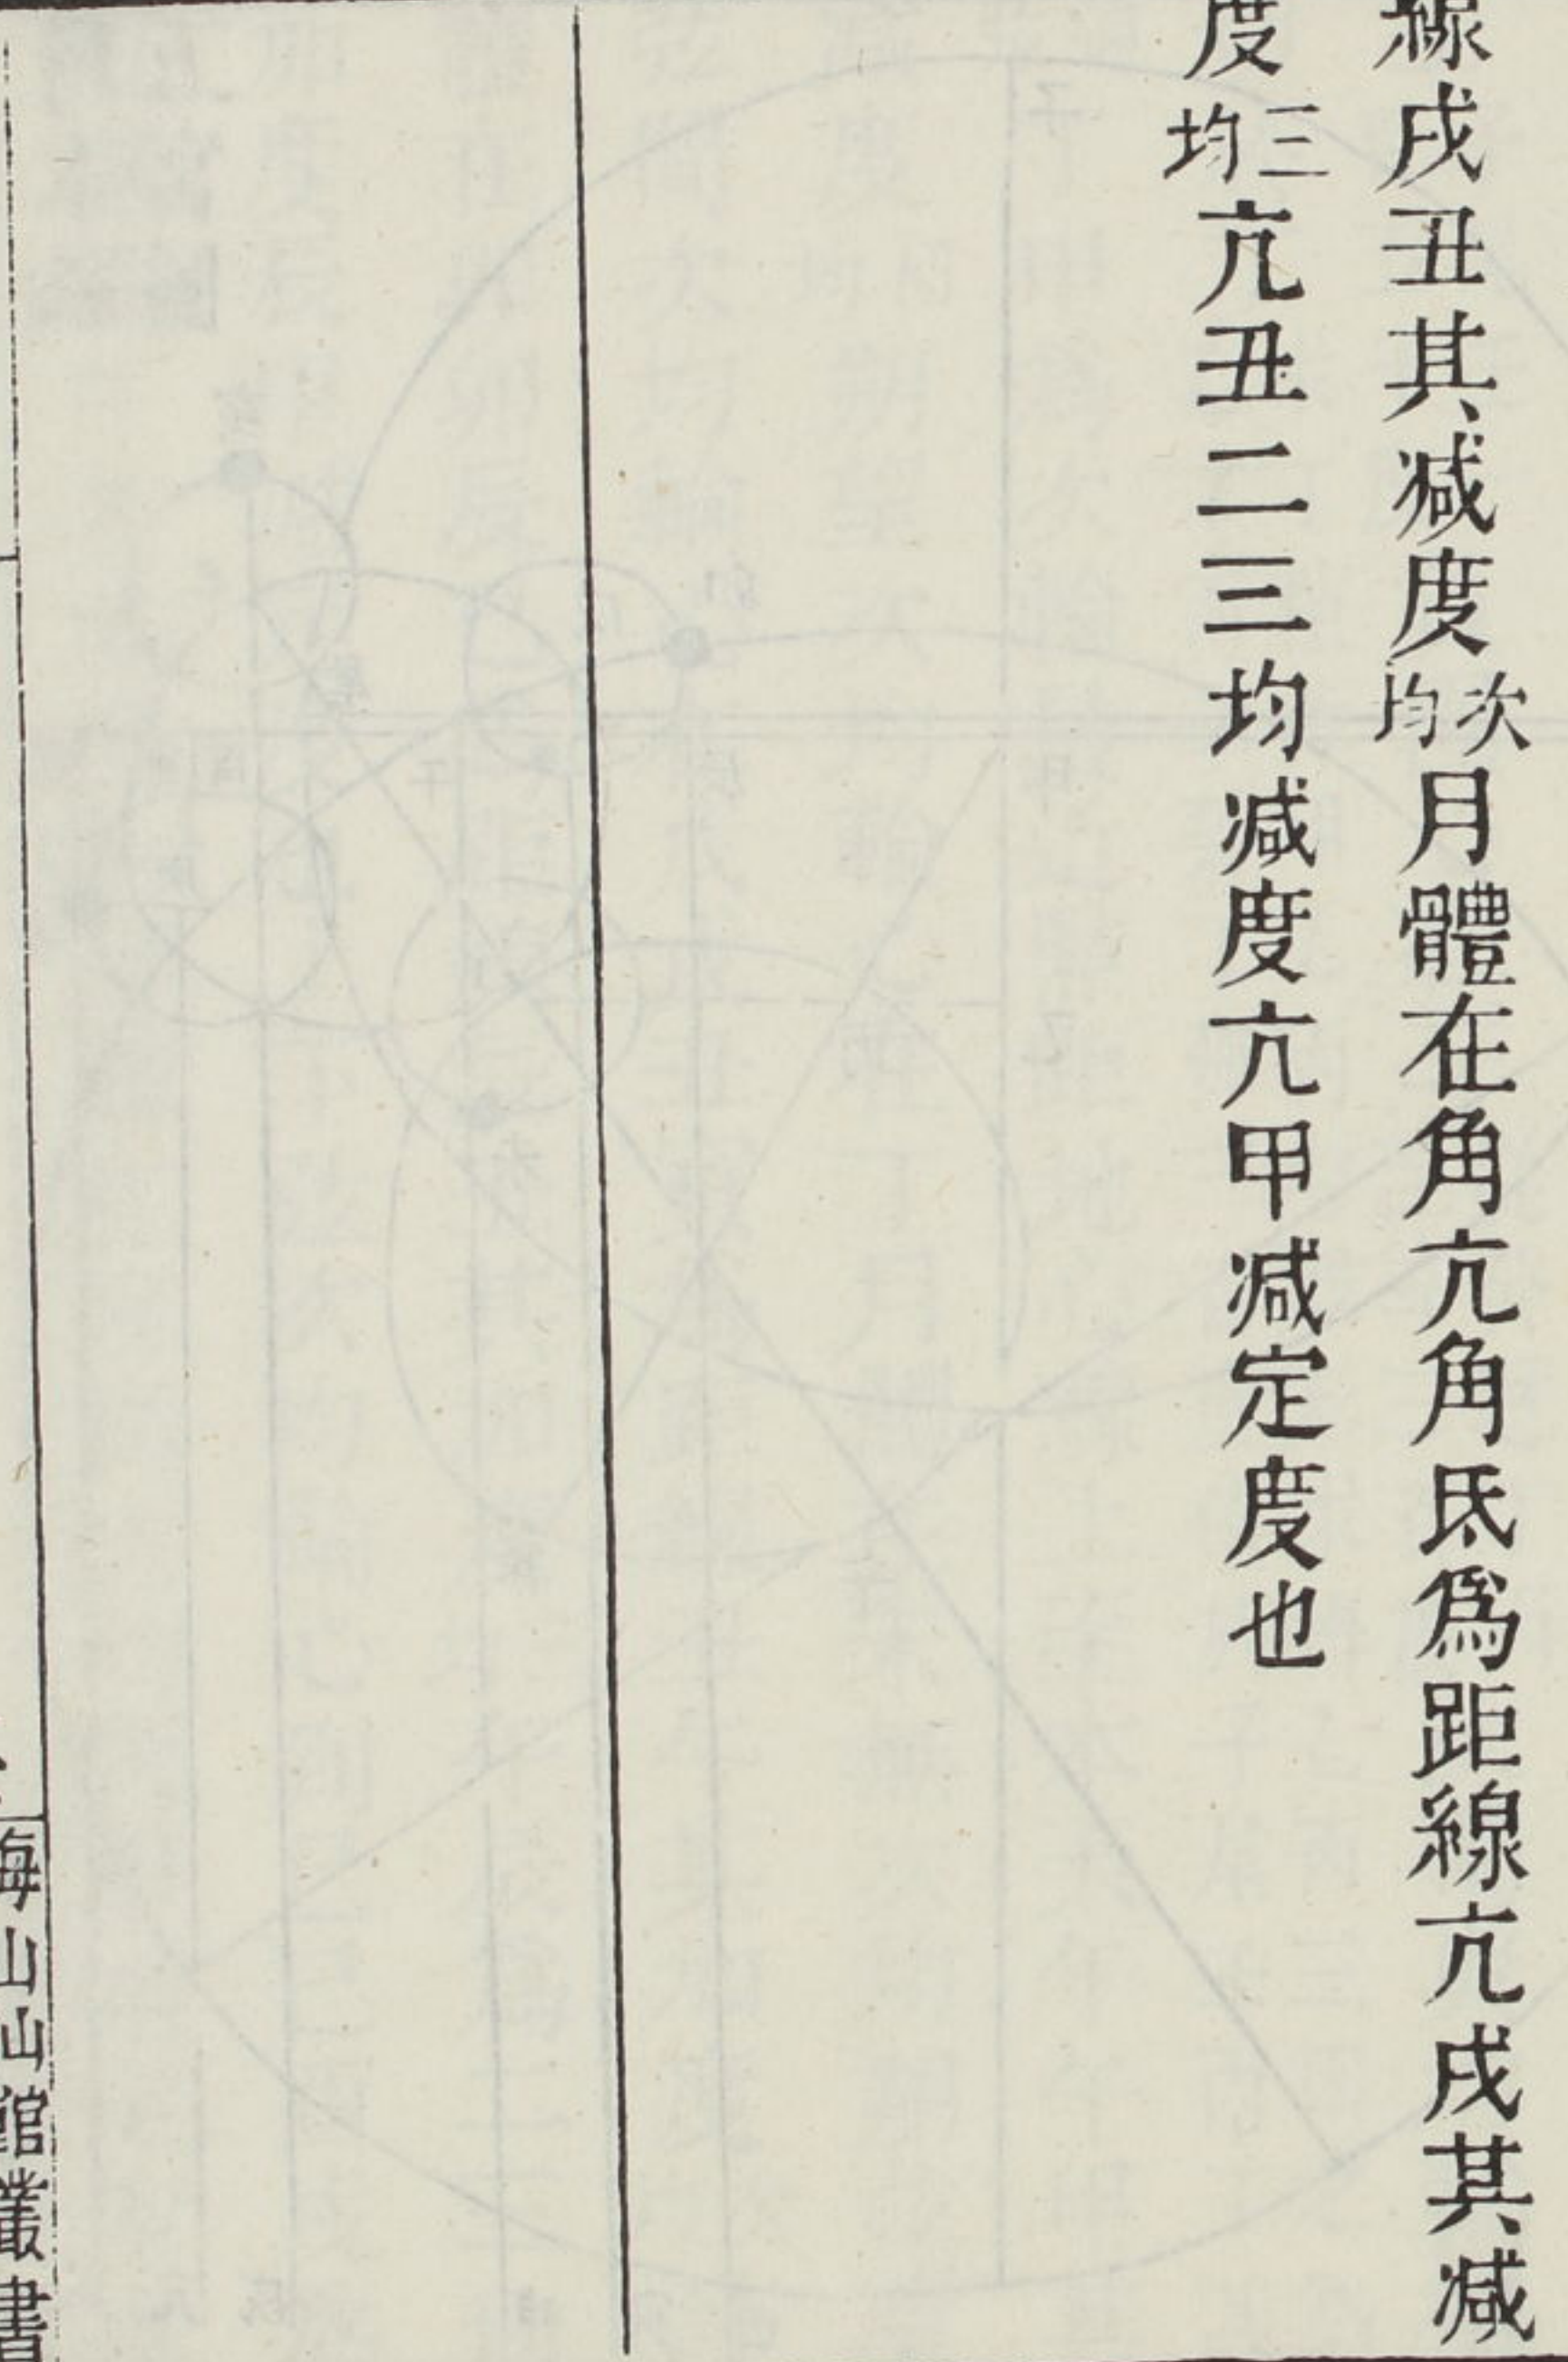 線戌丑其减度次均月體在角亢角氐爲距線亢戌其减
度三均亢丑二三均减度亢甲减定度也
海山山館叢書